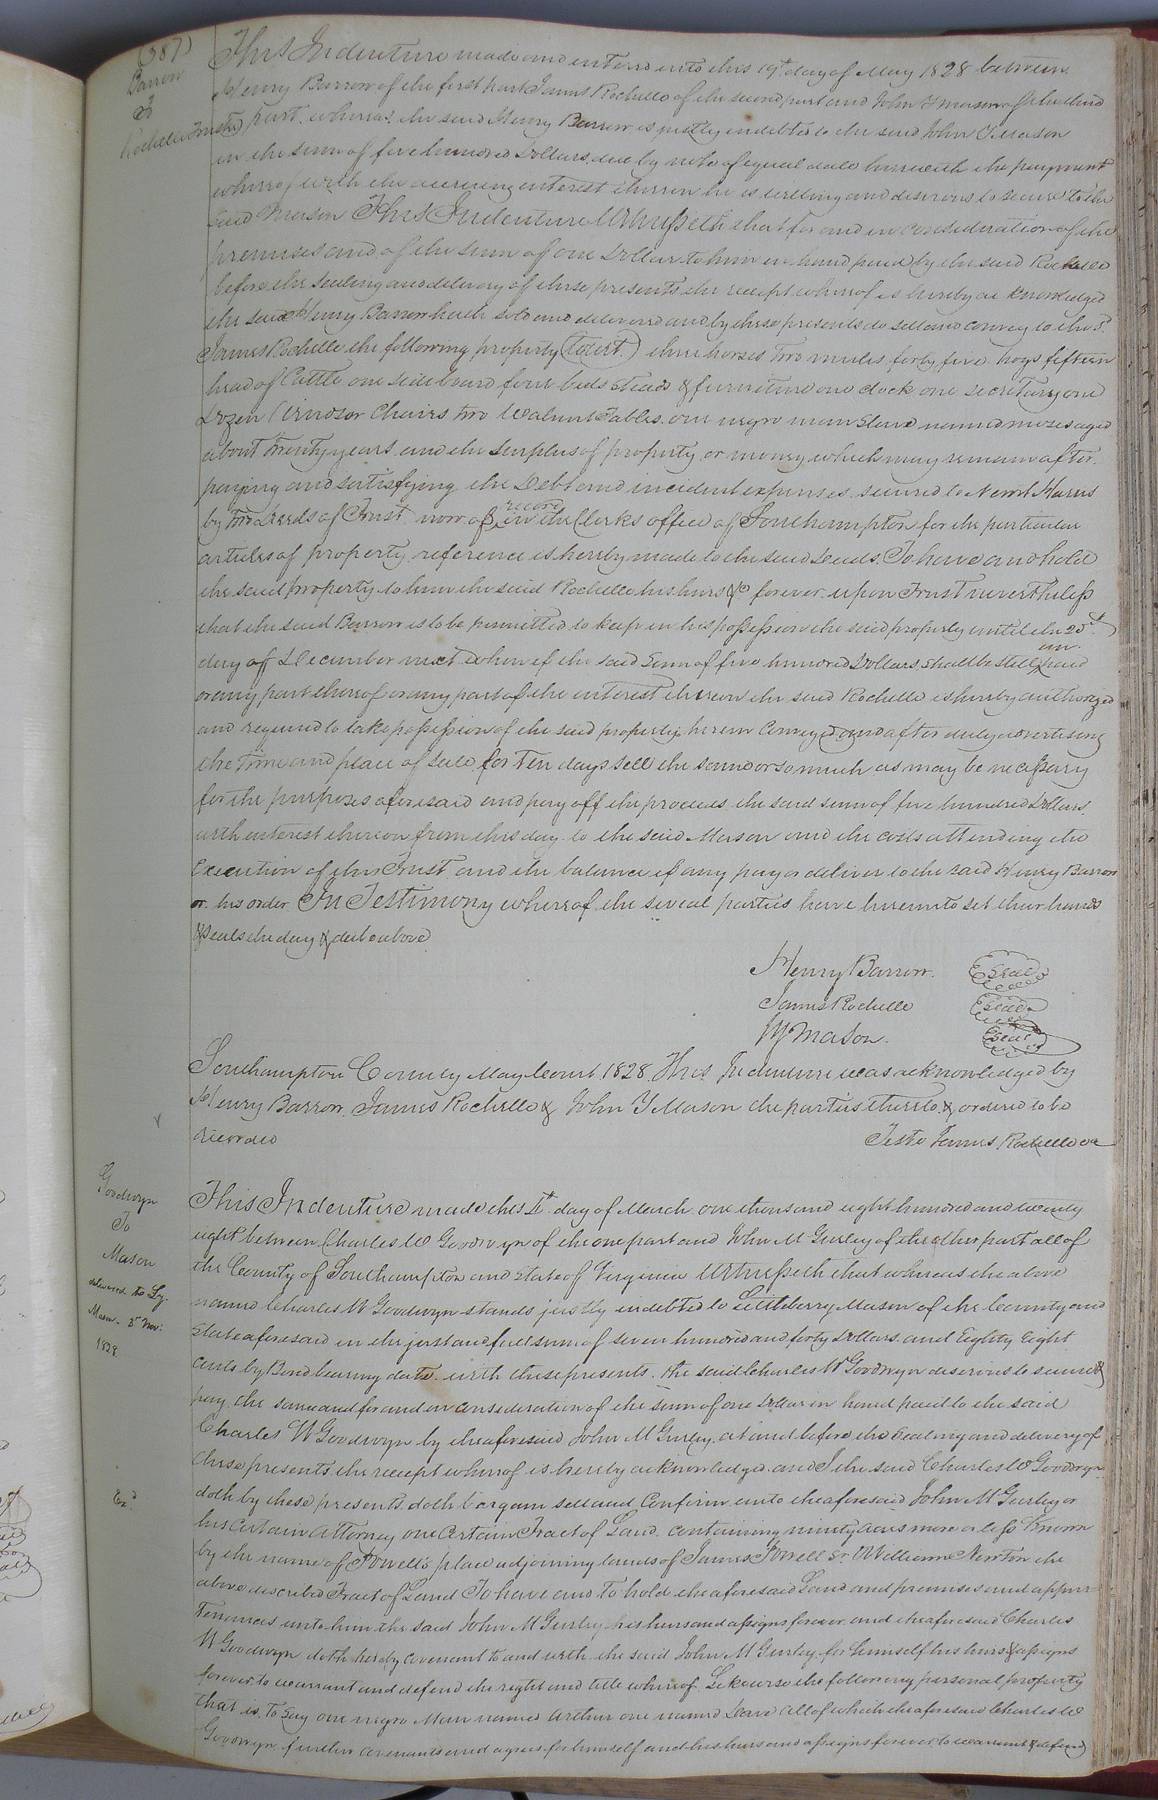 (387)
Barrow
To
Rochelle Trustee
This Indenture made and entered into this 19th day of May 1828 between
Henry Barrow of the first part James Rochelle of the second part and John Y Mason of the third
part. whereas the said Henry Barrow is justly indebted to the said John Y Mason
in the sum of five hundred Dollars, due by note of equal date herewith the payment
whereof with the accruing interest thereon he is willing and desirous to secure to the
said Mason This Indenture Witnesseth that for and in consideration of the
premises and of the sum of one Dollar to him in hand paid by the said Rochelle
before the sealing and delivery of these presents the receipt whereof is hereby acknowledged
the said Henry Barrow hath sold and delivered and by these presents do sell and convey to the sd
James Rochelle the following property (towit.) three horses two mules forty five hogs fifteen
head of Cattle one sideboard four beds steads & furniture one clock one secretary one
Dozen Windsor Chairs two Walnut Tables. one negro man slave named moses aged
about twenty years and the surplus of property or money which may remain after
paying and satisfying the Debt and incident expenses secured to Newit Harris
by two Deeds of Trust now of record in the Clerks office of Southampton for the particular
articles of property reference is hereby made to the said Deeds. To have and hold
the said property to him the said Rochelle his heirs &c forever upon Trust nevertheless
that the said Barrow is to be permitted to keep in his possession the said property until the 25th
day of December next when if the said Sum of five hundred Dollars shall be still unpaid
or any part thereof or any part of the interest thereon the said Rochelle is hereby authorized
and required to take possession of the said property herein conveyed and after duly advertising
the time and place of sale for Ten days sell the same or so much as may be necessary
for the purposes aforesaid and pay off the proceeds the said sum of five hundred Dollars
with interest thereon from this day to the said Mason and the costs attending the
Execution of this Trust and the balance if any pay or deliver to the said Henry Barrow
or his order In Testimony whereof the several parties have hereunto set their hands
& seals the day & date above
Henry Barrow. Seal
James Rochelle Seal
JY Mason. Seal
Southampton County May Court 1828. This Indenture was acknowledged by
Henry Barrow, James Rochelle & John Y Mason the parties thereto & ordered to be
recorded
Teste James Rochelle
Goodwyn
To
Mason
delivered to Ly.
Mason. 3d Nov:
1828
Exd
This Indenture made this day of March one thousand eight hundred and twenty
eight between Charles W Goodwyn of the one part and John M Gurley of the other part all of
the County of Southampton and State of Virginia Witnesseth that whereas the above
named Charles W Goodwyn stands justly indebted to Littleberry Mason of the County and
State aforesaid in the just and full sum of seven hundred and forty Dollars and Eighty Eight
cents by Bond bearing date with these presents. the said Charles W Goodwyn desirous to secure &
pay the same and for and in consideration of the sum of one Dollar in hand paid to the said
Charles W Goodwyn by the aforesaid John M Gurley. at and before the sealing and delivery of
these presents the receipt whereof is hereby acknowledged. and I the said Charles W Goodwyn
doth by these presents doth bargain sell and Confirm unto the aforesaid John M Gurley or
his certain attorney one certain Tract of Land. containing ninety acres more or less Known
by the name of Powell's place adjoining lands of James Powell Sr William Newton the
above described Tract of Land To have and To hold the aforesaid Land and premises and appur
tenances unto him the said John M Gurley his heirs and assigns forever and the aforesaid Charles
W Goodwyn doth hereby covenant to and with the said John M Gurley for himself his heirs & assigns
forever to warrant and defend the right and title whereof Likewise the following personal property
that is To Say one negro Man named Arthur one named all of which the aforesaid Charles W
Goodwyn further covenants and agrees for himself and his heirs and assigns forever to warrant & defend